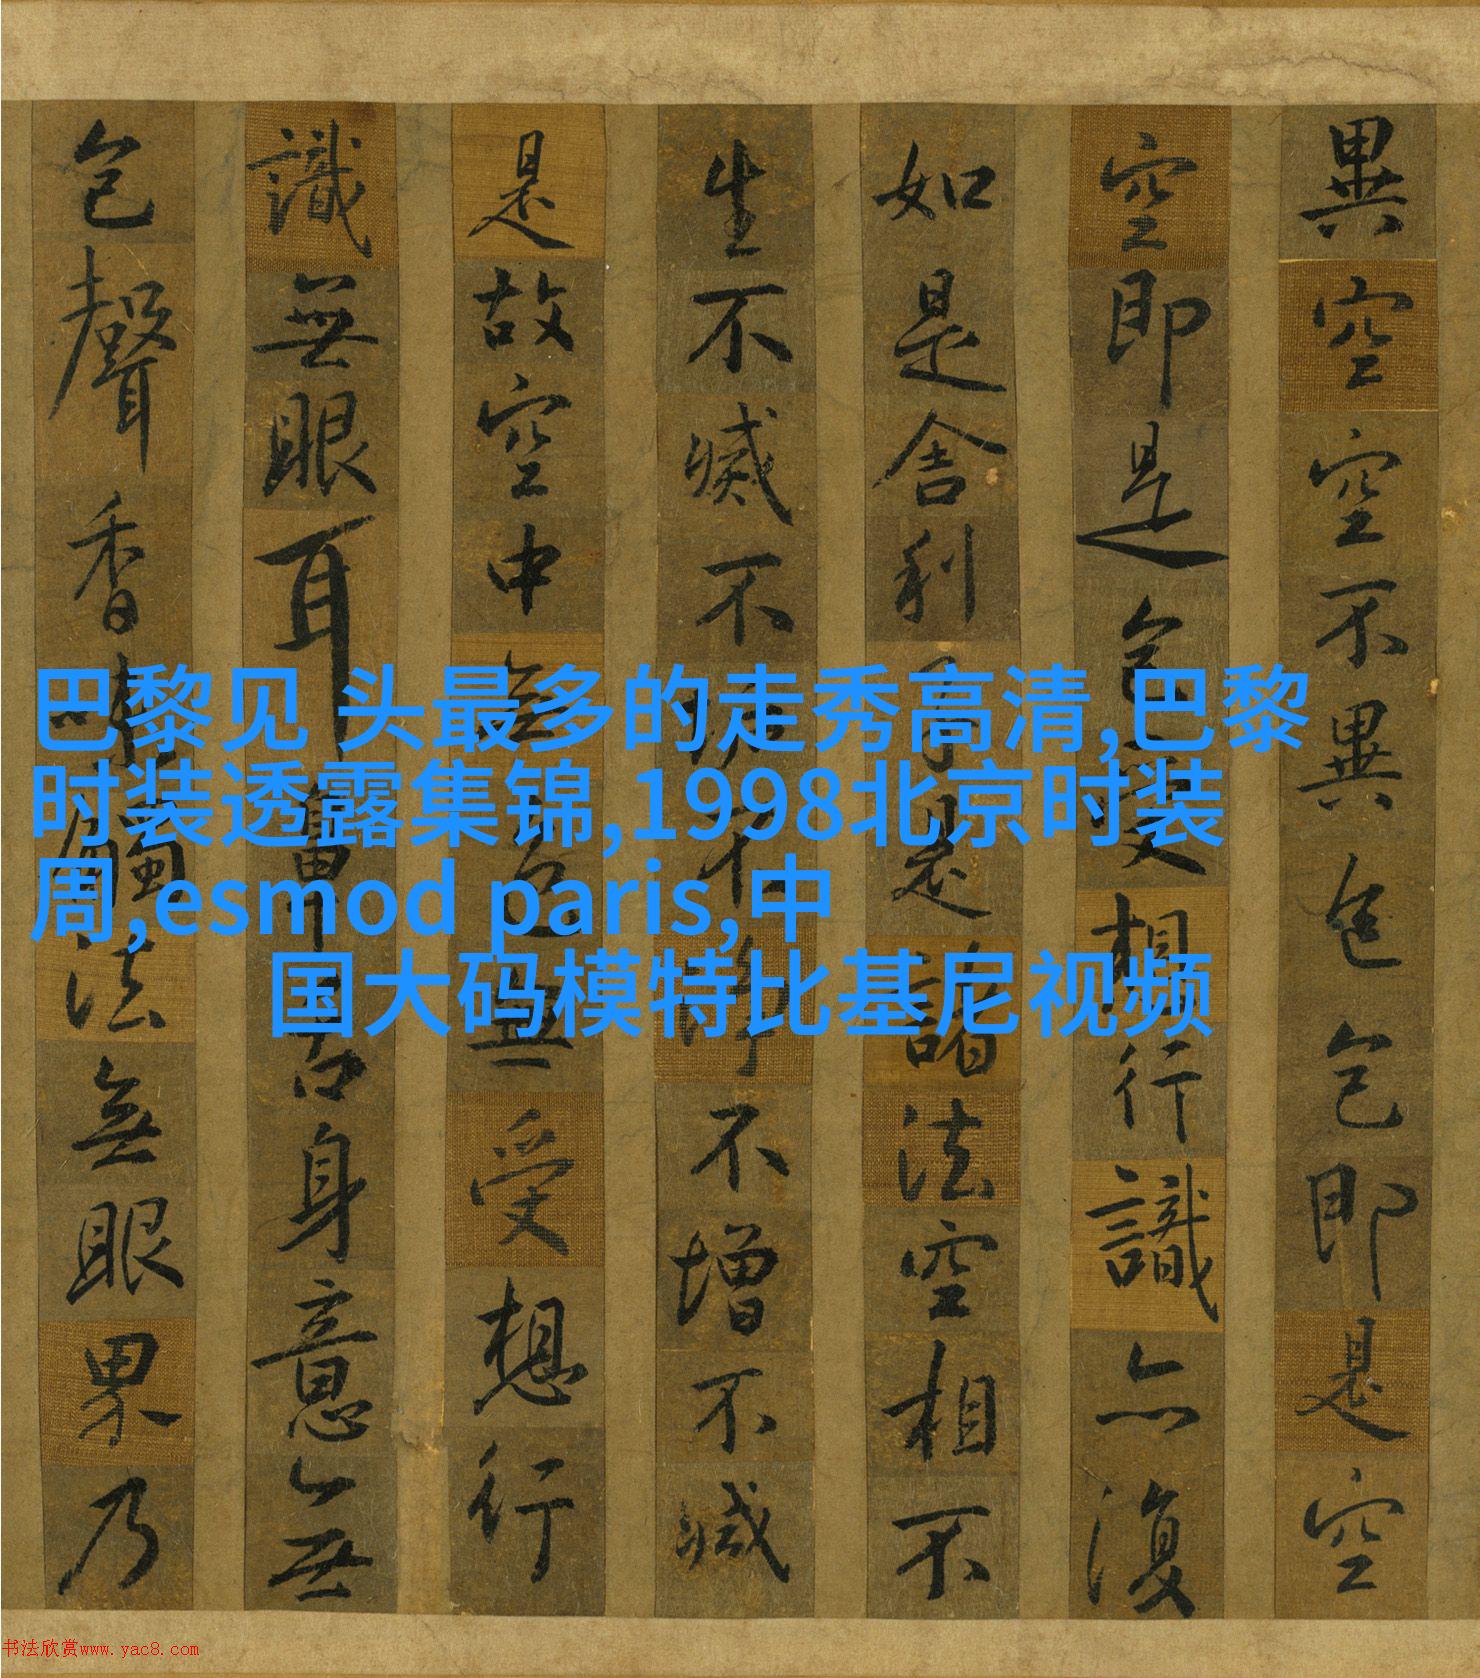 異空空不異色色即是空
空即是色受想行識亦復
如是舍利子是諸法空相不
生不滅不垢不淨不增不減
是故空中無色無受想行
識無眼耳鼻舌身意無
色聲香味觸法無眼界乃
巴黎见 头最多的走秀高清,巴黎
时装透露集锦,1998北京时装
周,esmod paris,中
国大码模特比基尼视频
书法欣赏www.yac8.com